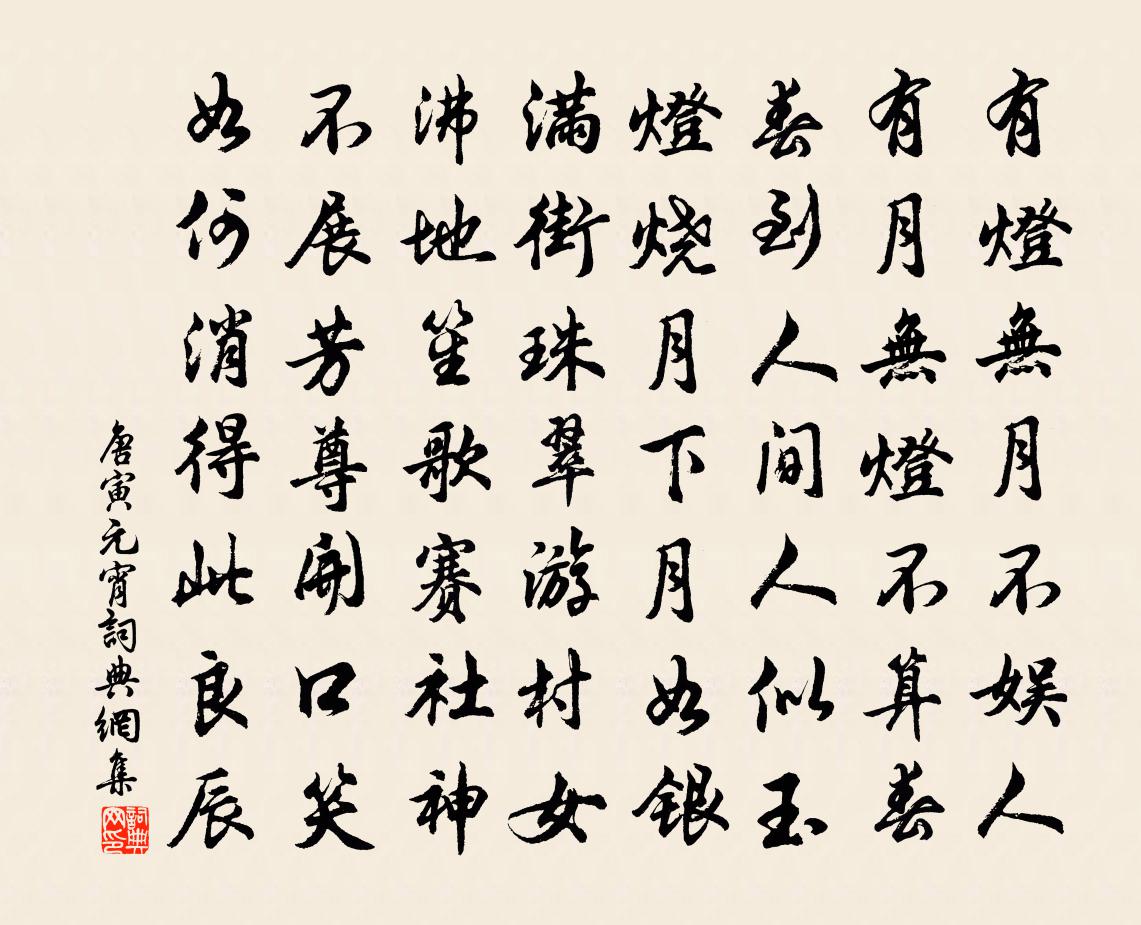 有燈無月不娱人
有月無燈不算春
春到人间人似玉
燈烧月下月如銀
满街珠翠游村女
沸地笙歌赛社神
不展芳尊開口笑
如何消得此良辰
唐寅元宵詞典網集
詞典网印